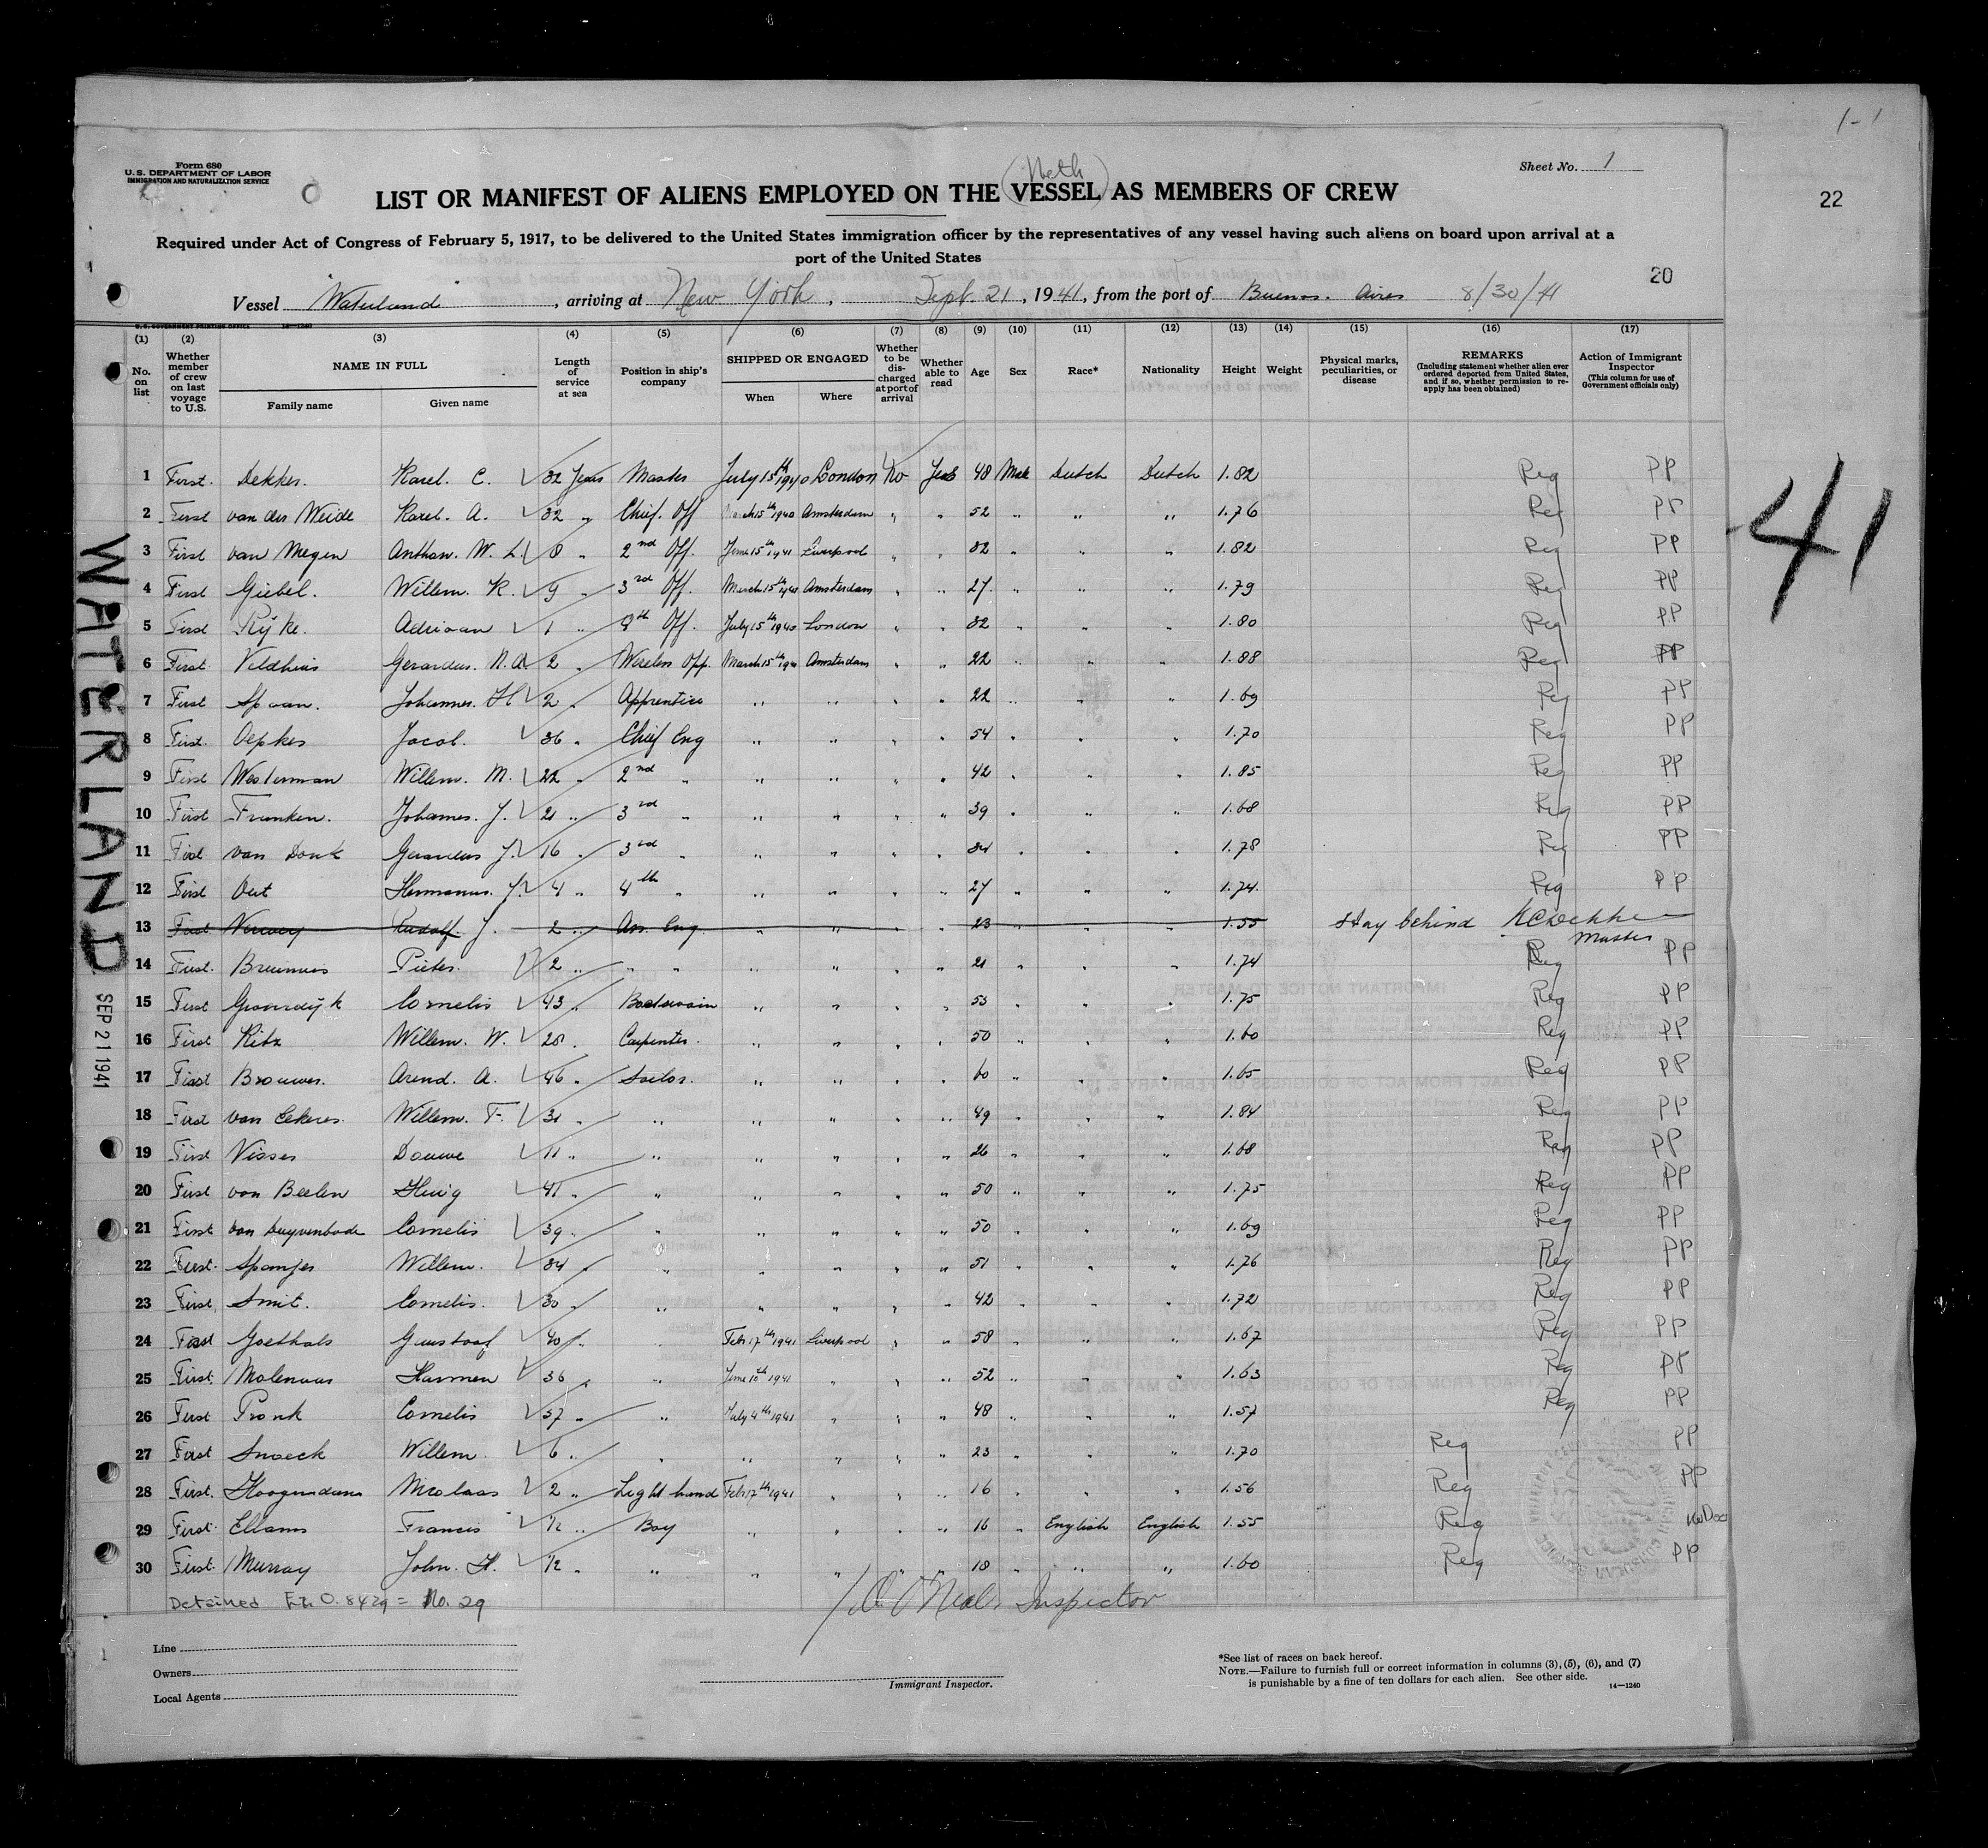 1-1
Form 680
U.S. DEPARTMENT OF LABOR
IMMIGRATION AND NATURALIZATION SERVICE
Sheet No. 1
Neth
LIST OR MANIFEST OF ALIENS EMPLOYED ON THE VESSEL AS MEMBERS OF CREW
22
Required under Act of Congress of February 5, 1917, to be delivered to the United States immigration officer by the representatives of any vessel having such aliens on board upon arrival at a
port of the United States
20
Vessel Waterland, arriving at New York, Sept. 21, 1941, from the port of Buenos Aires 8/30/41
U.S. GOVERNMENT PRINTING OFFICE 14—1240
(1) (2) (3) (4) (5) (6) (7) (8) (9) (10) (11) (12) (13) (14) (15) (16) (17)
No. on list
Whether member of crew on last voyage to U.S.
NAME IN FULL
Family name
Given name
Length of service at sea
Position in ship's company
SHIPPED OR ENGAGED
When
Where
Whether to be discharged at port of arrival
Whether able to read
Age
Sex
Race*
Nationality
Height
Weight
Physical marks, peculiarities, or disease
REMARKS
(Including statement whether alien ever ordered deported from United States, and if so, whether permission to reapply has been obtained)
Action of Immigrant Inspector
(This column for use of Government officials only)
1 First. Dekker. Karel. C. 32 Years Master July 15th 1940 London No Yes 48 Male Dutch Dutch 1.82 Reg PP
2 First van der Weide Karel. A. 32 " Chief. Off March 15th 1940 Amsterdam " " 52 " " " 1.76 Reg PP
3 First van Megen Anthon. W. L. 8 " 2nd Off. June 15th 1941 Liverpool " " 32 " " " 1.82 Reg PP
4 First Giebel. Willem. K. 9 " 3rd Off. March 15th 1940 Amsterdam " " 27. " " " 1.79 Reg PP
5 First Rijke. Adriaan 1 " 4th Off. July 15th 1940 London " " 32 " " " 1.80 Reg PP
6 First. Veldhuis Gerardus. N.A. 2 " Wireless Opp. March 15th 1940 Amsterdam " " 22 " " " 1.88 Reg PP
7 First Spaan. Johannes. H 2 " Apprentice " " " " 22 " " " 1.69 Reg PP
8 First. Oepkes Jacob. 36 " Chief Eng " " " " 54 " " " 1.70 Reg PP
9 First Westerman Willem. M. 22 " 2nd " " " " " 42 " " " 1.85 Reg PP
10 First Franken. Johannes. J. 21 " 3rd " " " " " 39 " " " 1.68 Reg PP
11 First van Donk Gerardus J. 16 " 3rd " " " " " 34 " " " 1.78 Reg PP
12 First Out Hermanus. J. 4 " 4th " " " " " 27 " " " 1.74. Reg PP
13 First Verwey Rudolf J. 2 " Ass. Eng. " " 23 " " " 1.55 stay behind KCDekker
Master
14 First. Bruinuis Pieter. 2 " " " " " " " 21 " " " 1.74 Reg PP
15 First Cornelis 43 " Boatswain " " " " 53 " " " 1.75 Reg PP
16 First Willem. W. Carpenter. " " " " 50 " " " 1.60 Reg PP
17 First Brouwer. Arend. A. 46 " Sailor. " " " " 60 " " " 1.65 Reg PP
18 First van Ekeres. Willem. F. 31 " " " " " " 49 " " " 1.84 Reg PP
19 First Visser Douwe 11 " " " " " " 26 " " " 1.68 Reg PP
20 First van Beelen Huig 41 " " " " " " 50 " " " 1.75 Reg PP
21 First van Duyvenbode Cornelis 39 " " " " " " 50 " " " 1.69 Reg PP
22 First. Spanjer Willem. 34 " " " " " 51 " " " 1.76 Reg PP
23 First. Smit. Cornelis. 30 " " " " " " 42 " " " 1.72 Reg PP
24 First Goethals Gustaaf 40 " " Feb. 17th 1941 Liverpool " " 58 " " " 1.67 Reg PP
25 First. Molenaar Harmen 36 " " June 10th 1941 " " " 52 " " " 1.63 Reg PP
26 First Pronk Cornelis 37 " " July 4th 1941 " " " 48 " " " 1.57 Reg PP
27 First Snoeck Willem. 6 " " " " " " 23 " " " 1.70 Reg PP
28 First. Hoogendam Nicolaas 2 " Light hand Feb. 17th 1941 " " " 16 " " " 1.56 Reg PP
29 First. Ellams Francis 1/2 " Boy " " " " 16 " English English 1.55 Reg No Doc
30 First. Murray John. H. 1/2 " " " " " " 18 " " " 1.60 Reg PP
Detained No. 29
O'Neal Inspector
Line
Owners
Local Agents
Immigrant Inspector.
*See list of races on back hereof.
NOTE.—Failure to furnish full or correct information in columns (3), (5), (6), and (7)
is punishable by a fine of ten dollars for each alien. See other side.
14—1240
WATERLAND
SEP 21 1941
41